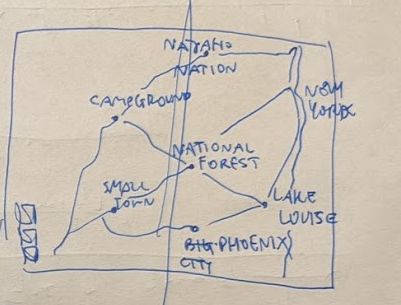 NAVAHO
NATION
CAMPGROUND
NEW
YORK
NATIONAL
FOREST
SMALL
TOWN
LAKE
LOUISE
BIG PHOENIX
CITY